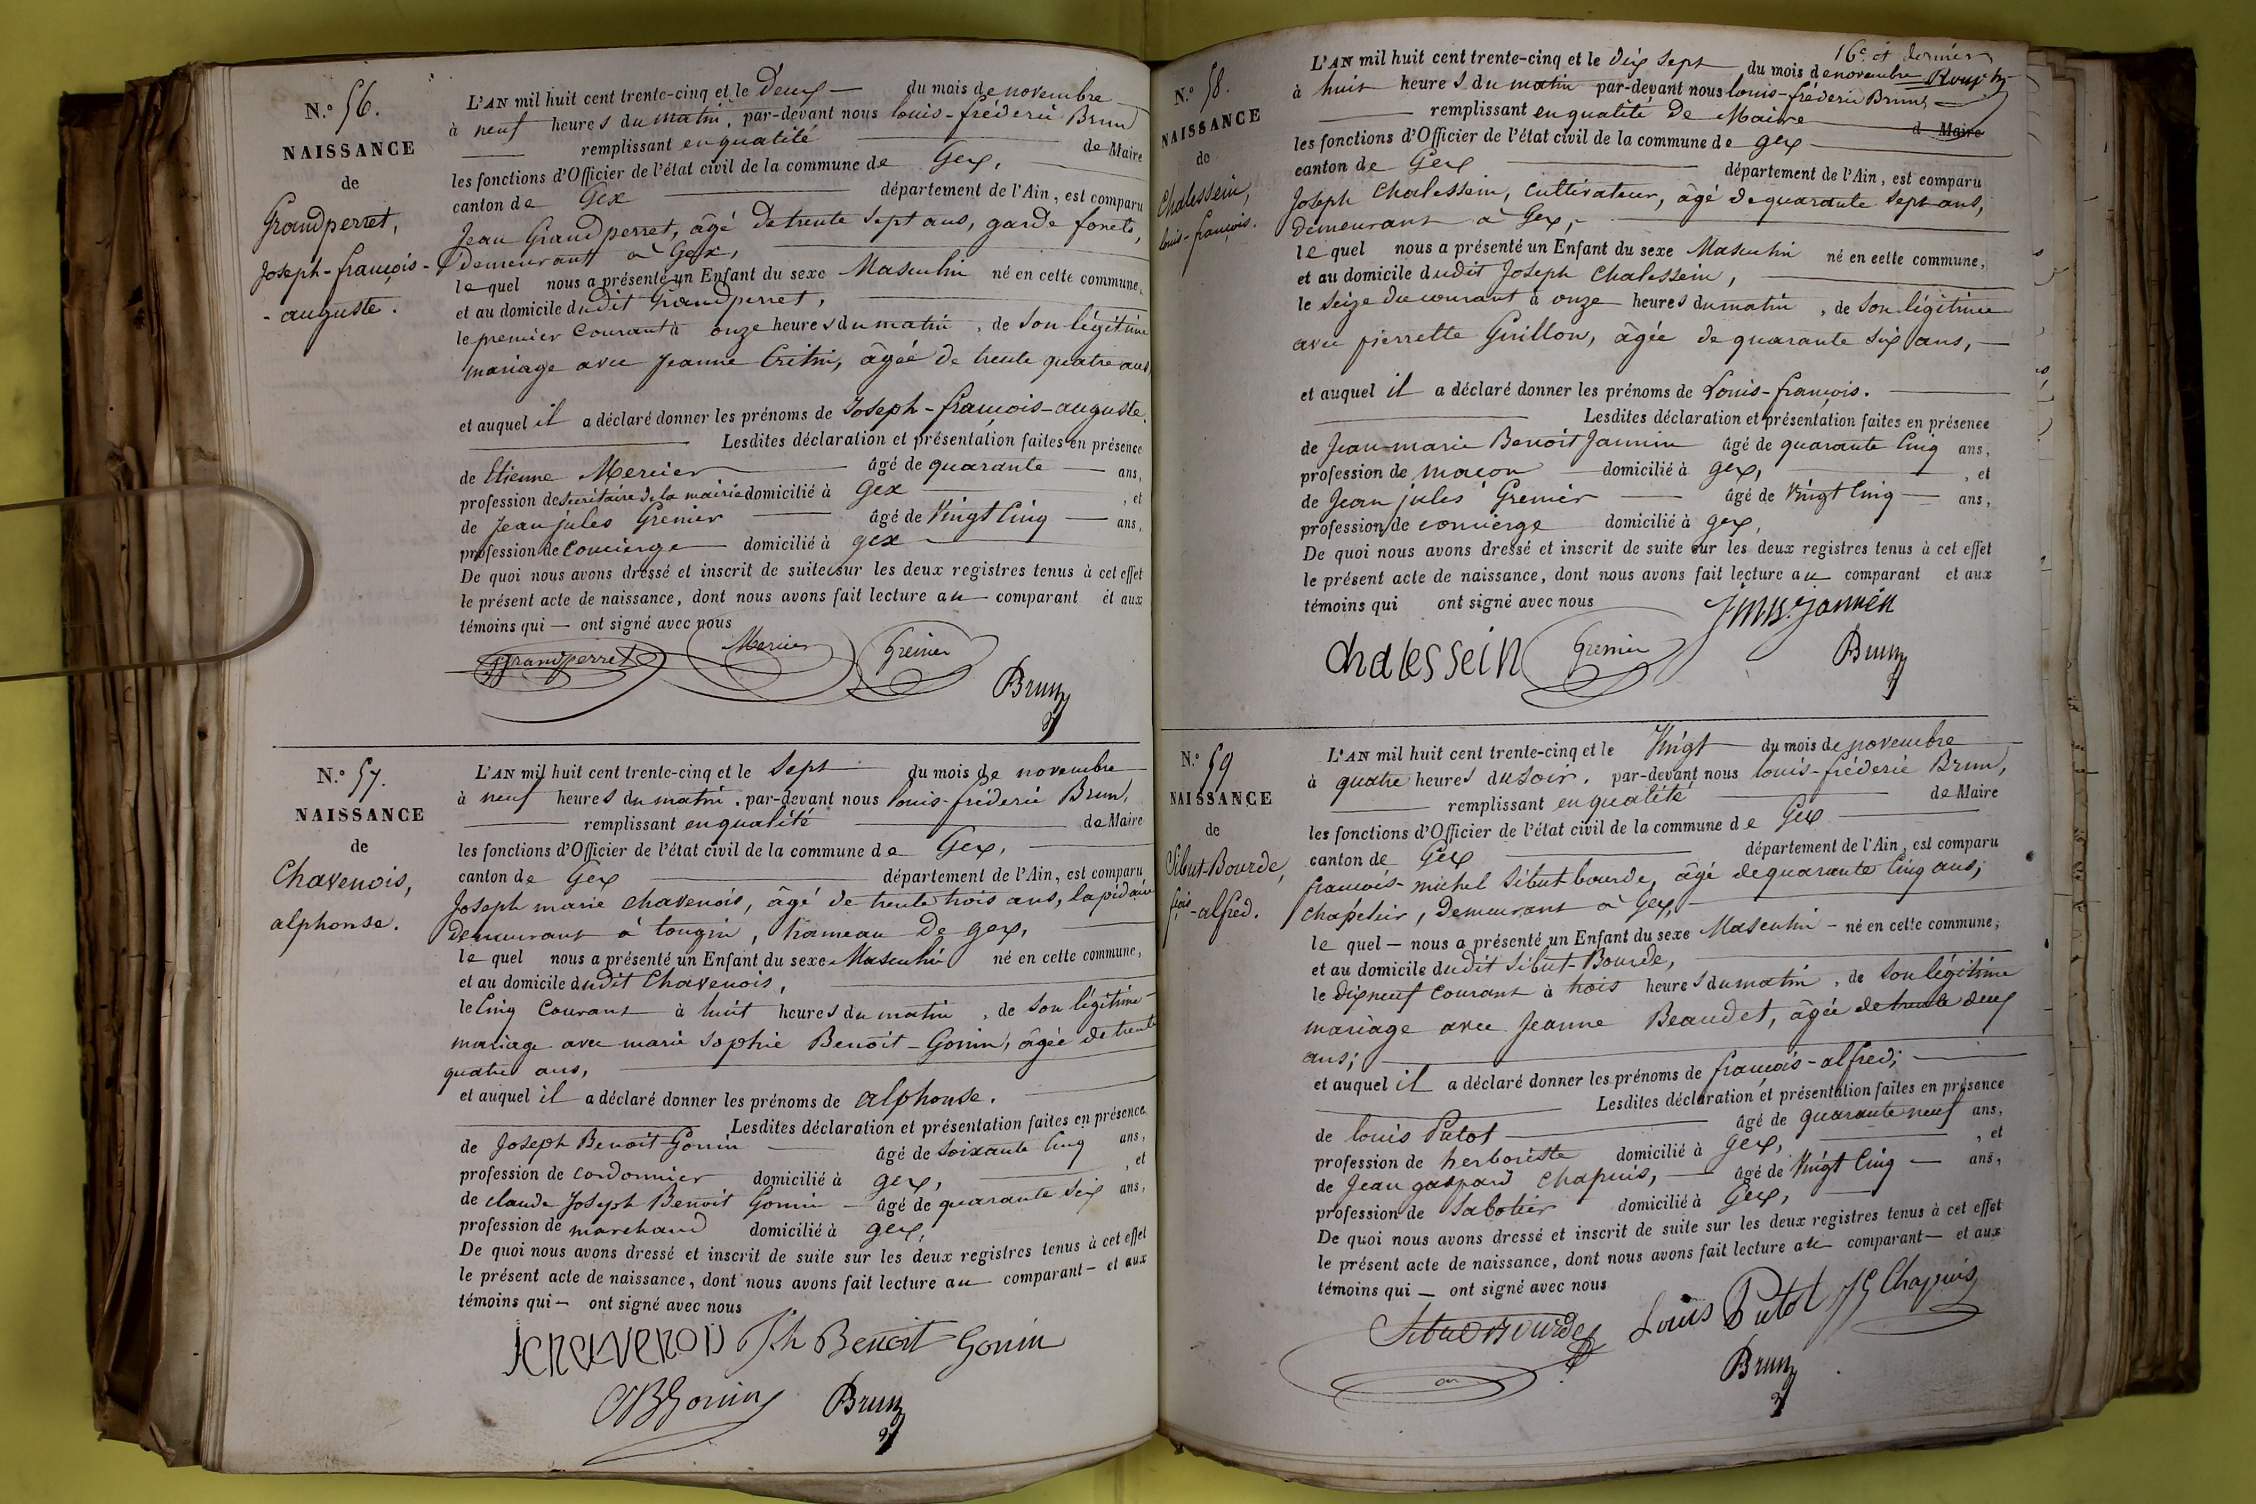 N.° 56.
NAISSANCE
de
Grandperret,
Joseph-françois-
-auguste.
L'AN mil huit cent trente-cinq et le Deux — du mois de novembre
à neuf heures du matin, par-devant nous louis-fréderic Brun
remplissant en qualité de Maire
les fonctions d'Officier de l'état civil de la commune de Gex,
canton de Gex département de l'Ain, est comparu
Jean Grandperret, âgé de trente sept ans, garde forets,
demeurant à Gex,
le quel nous a présenté un Enfant du sexe Masculin né en cette commune,
et au domicile dudit Grandperret,
le premier Courant à onze heures du matin, de son légitime
mariage avec Jeanne Critin, âgée de trente quatre ans
et auquel il a déclaré donner les prénoms de Joseph-françois-auguste.
Lesdites déclaration et présentation faites en présence
de Etienne Mercier âgé de quarante — ans,
profession de secrétaire de la mairie domicilié à Gex , et
de Jean jules Grenier âgé de Vingt Cinq — ans,
profession de Concierge domicilié à gex
De quoi nous avons dressé et inscrit de suite sur les deux registres tenus à cet effet
le présent acte de naissance, dont nous avons fait lecture au comparant et aux
témoins qui — ont signé avec nous
Grandperret Mercier Grenier
Brun
N.° 57.
NAISSANCE
de
Chavenois,
alphonse.
L'AN mil huit cent trente-cinq et le Sept du mois de novembre
à neuf heures du matin, par-devant nous louis-fréderic Brun,
remplissant en qualité de Maire
les fonctions d'Officier de l'état civil de la commune de Gex,
canton de Gex département de l'Ain, est comparu
Joseph marie Chavenois, âgé de trente trois ans, lapidaire
demeurant à tougin, hameau de gex,
le quel nous a présenté un Enfant du sexe Masculin né en cette commune,
et au domicile dudit Chavenois,
le Cinq Courant à huit heures du matin, de son légitime
mariage avec marie Sophie Benoit-Gonin, âgée de trente
quatre ans,
et auquel il a déclaré donner les prénoms de alphonse.
Lesdites déclaration et présentation faites en présence
de Joseph Benoit-Gonin âgé de Soixante Cinq ans,
profession de cordonnier domicilié à gex, , et
de claude Joseph Benoit Gonin — âgé de quarante six ans,
profession de marchand domicilié à gex,
De quoi nous avons dressé et inscrit de suite sur les deux registres tenus à cet effet
le présent acte de naissance, dont nous avons fait lecture au comparant — et aux
témoins qui — ont signé avec nous
Jchavenois Jh Benoit-Gonin
CJBGonin Brun
16.e et dernier
N.° 58.
NAISSANCE
de
Chalessein,
louis-françois.
L'AN mil huit cent trente-cinq et le dix sept du mois de novembre
à huit heures du matin par-devant nous louis-fréderic Brun,
remplissant en qualité De Maire d Maire
les fonctions d'Officier de l'état civil de la commune de gex
canton de Gex département de l'Ain, est comparu
Joseph Chalessein, cultivateur, âgé de quarante sept ans,
demeurant à Gex,
le quel nous a présenté un Enfant du sexe Masculin né en cette commune,
et au domicile dudit Joseph Chalessein,
le Seize du courant à onze heures du matin, de son légitime
avec pierrette Guillon, âgée de quarante six ans, —
et auquel il a déclaré donner les prénoms de Louis-françois.
Lesdites déclaration et présentation faites en présence
de Jean-marie Benoit Jannin âgé de quarante Cinq ans,
profession de macon domicilié à gex, , et
de Jean jules Grenier âgé de Vingt Cinq — ans,
profession de concierge domicilié à gex,
De quoi nous avons dressé et inscrit de suite sur les deux registres tenus à cet effet
le présent acte de naissance, dont nous avons fait lecture au comparant et aux
témoins qui ont signé avec nous
JMB. jannin
chalessein Grenier Brun
N.° 59
NAISSANCE
de
Sibut-Bourde,
fçois-alfred.
L'AN mil huit cent trente-cinq et le Vingt du mois de novembre
à quatre heures du soir, par-devant nous louis-fréderic Brun,
remplissant en qualité de Maire
les fonctions d'Officier de l'état civil de la commune de Gex
canton de Gex département de l'Ain, est comparu
françois-michel Sibut bourde, âgé de quarante Cinq ans,
chapelier, demeurant à Gex,
le quel — nous a présenté un Enfant du sexe Masculin — né en cette commune,
et au domicile dudit Sibut-Bourde,
le dix neuf Courant à trois heures du matin, de son légitime
mariage avec Jeanne Beaudet, âgée de trente deux
ans;
et auquel il a déclaré donner les prénoms de françois-alfred;
Lesdites déclaration et présentation faites en présence
de louis Putot âgé de quarante neuf ans,
profession de herboriste domicilié à gex, , et
de Jean gaspard Chapuis, âgé de Vingt Cinq — ans,
profession de Sabotier domicilié à Gex,
De quoi nous avons dressé et inscrit de suite sur les deux registres tenus à cet effet
le présent acte de naissance, dont nous avons fait lecture au comparant — et aux
témoins qui — ont signé avec nous
Sibut Bourde Louis Putot JG Chapuis
Brun